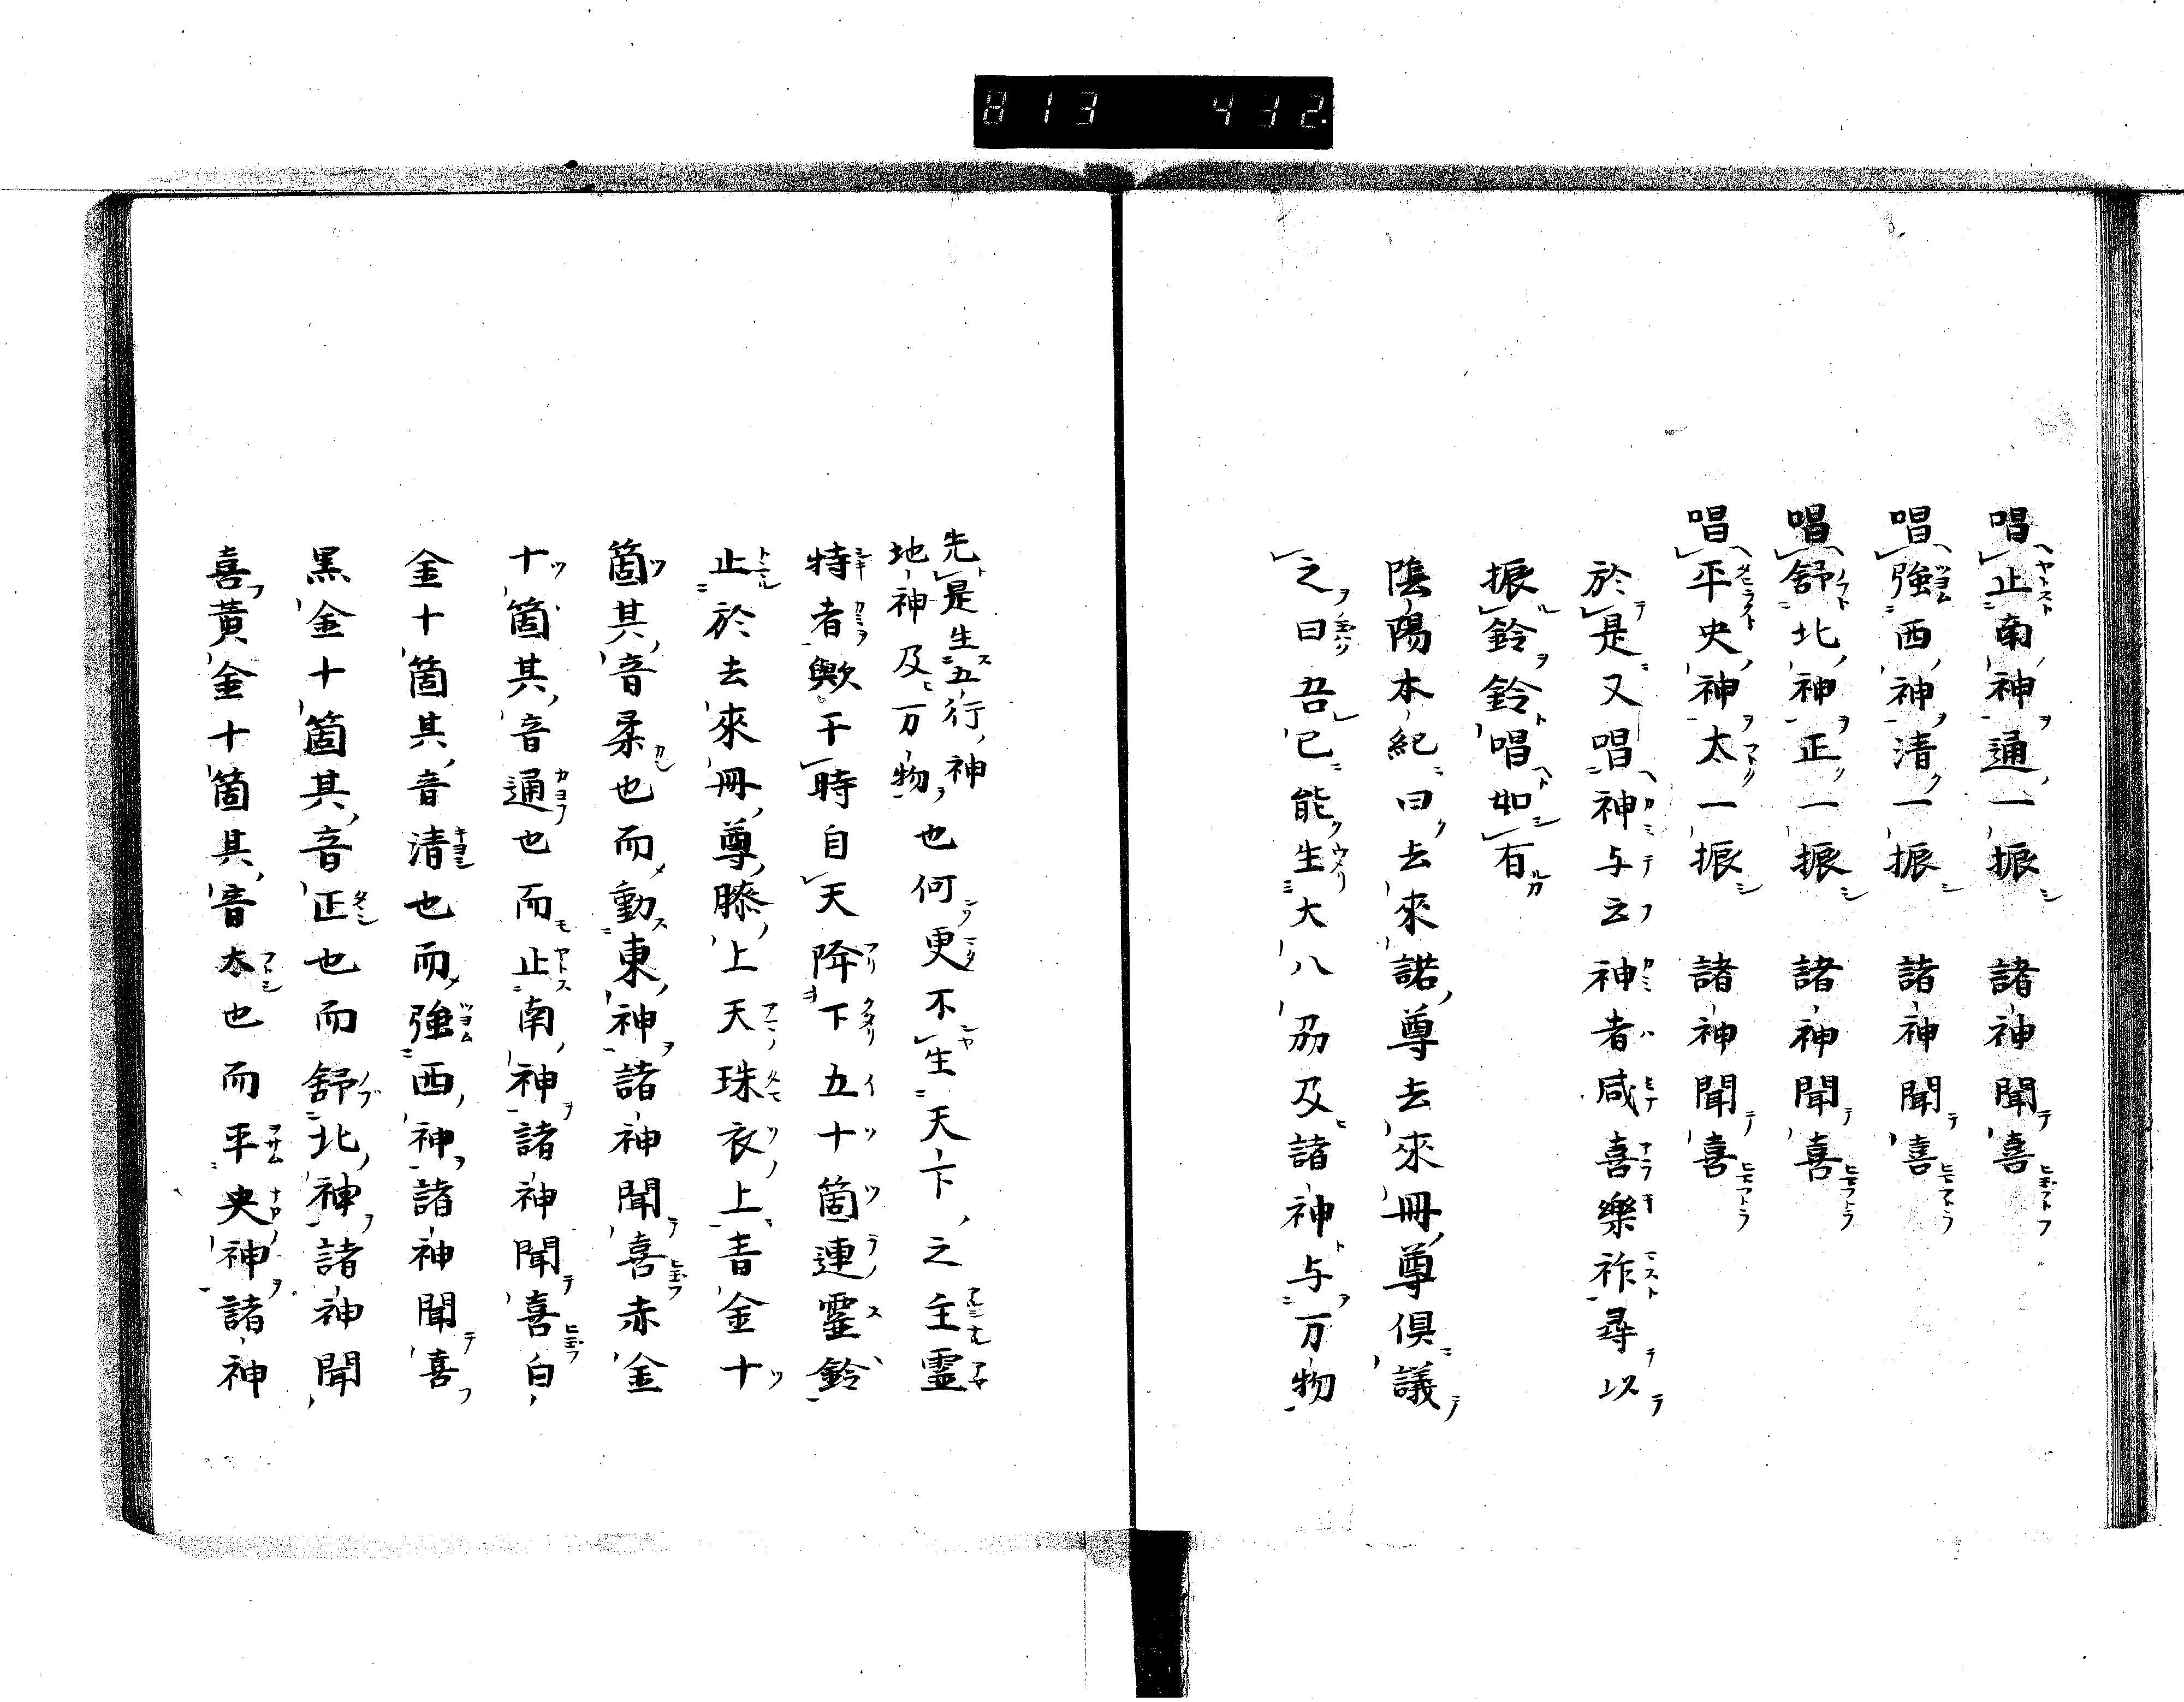 813 432
唱止南神通一振 諸神聞喜
唱強西神清一振 諸神聞喜
唱舒北神正一振 諸神聞喜
唱平央神太一振 諸神聞喜
於是又唱神与云神者咸喜樂祚尋以
振鈴鈴唱如有
陰陽本紀曰去來諾尊去來冊尊俱議
之曰吾已能生大八刕及諸神与万物
先是生五行神
地神及万物也何更不生天下之主霊
特者歟于時自天降下五十箇連霊鈴
止於去來冊尊膝上天珠衣上青金十
箇其音柔也而動東神諸神聞喜赤金
十箇其音通也而止南神諸神聞喜白
金十箇其音清也而強西神諸神聞喜
黒金十箇其音正也而舒北神諸神聞
喜黄金十箇其音太也而平央神諸神